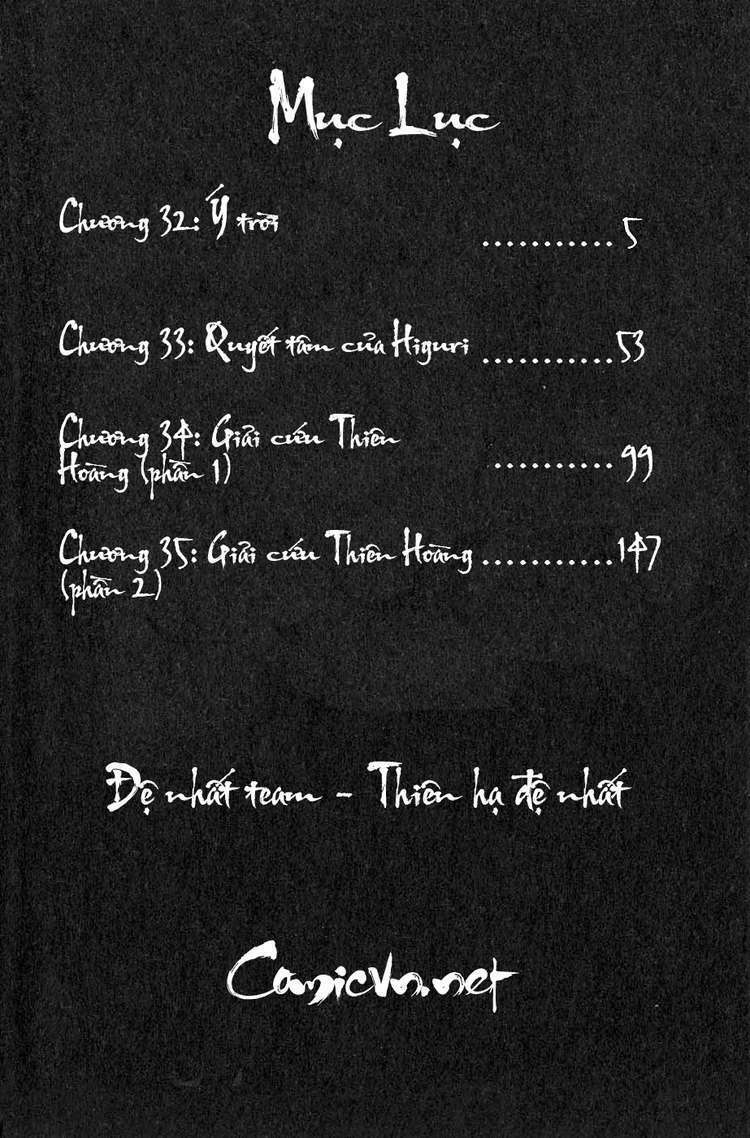 Mục Lục
Chương 32: Ý trời ........... 5
Chương 33: Quyết tâm của Higuri ........... 53
Chương 34: Giải cứu Thiên
Hoàng (phần 1) .......... 99
Chương 35: Giải cứu Thiên Hoàng ........... 147
(phần 2)
Đệ nhất team - Thiên hạ đệ nhất
Comicvn.net